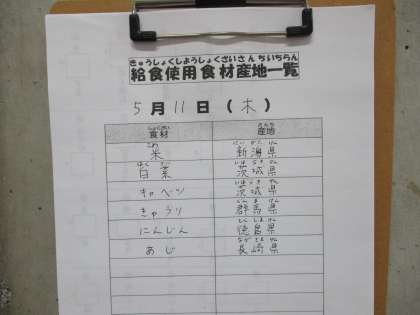 きゅうしょくしようしょくざいさんちいちらん
給食使用食材産地一覧
5月11日(木)
しょくざい さんち
食材 産地
こめ にいがたけん
米 新潟県
はくさい いばらきけん
白菜 茨城県
いばらきけん
キャベツ 茨城県
ぐんまけん
きゅうり 群馬県
とくしまけん
にんじん 徳島県
ながさきけん
あじ 長崎県